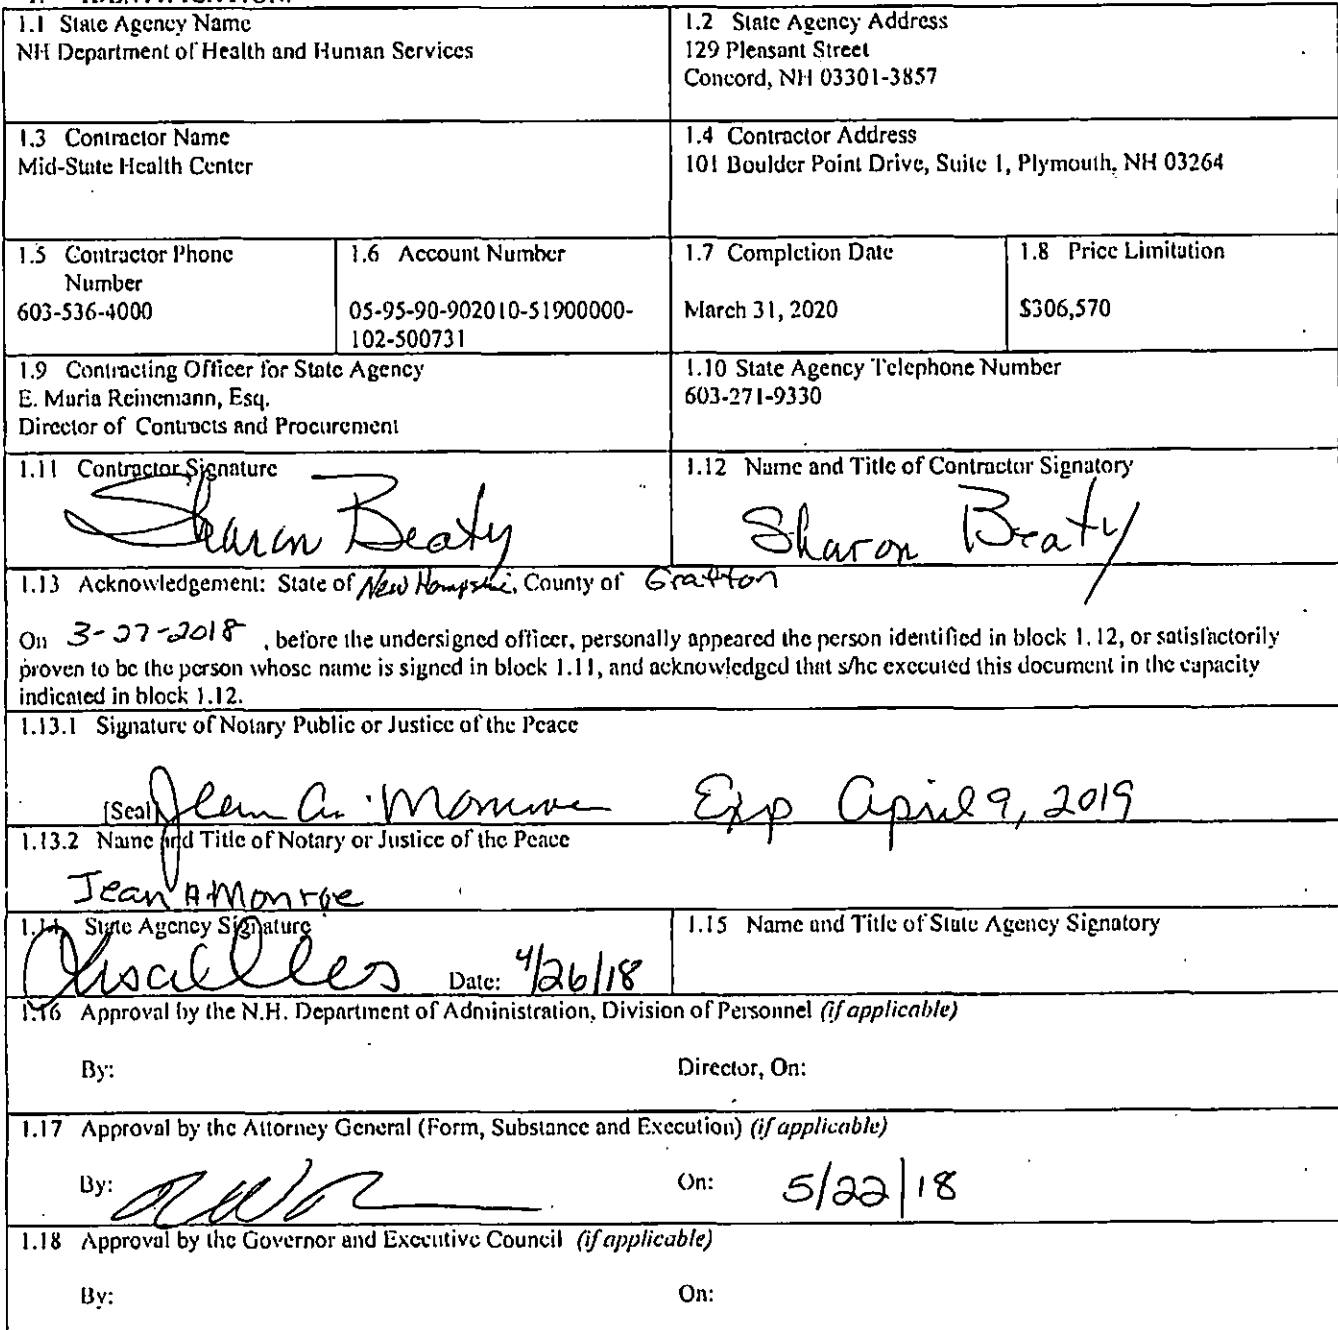 1.1 State Agency Name
NH Department of Health and Human Services
1.2 State Agency Address
129 Pleasant Street
Concord, NH 03301-3857
1.3 Contractor Name
Mid-State Health Center
1.4 Contractor Address
101 Boulder Point Drive, Suite 1, Plymouth, NH 03264
1.5 Contractor Phone
Number
603-536-4000
1.6 Account Number
05-95-90-902010-51900000-
102-500731
1.7 Completion Date
March 31, 2020
1.8 Price Limitation
$306,570
1.9 Contracting Officer for State Agency
E. Maria Reinemann, Esq.
Director of Contracts and Procurement
1.10 State Agency Telephone Number
603-271-9330
1.11 Contractor Signature
Sharon Beaty
1.12 Name and Title of Contractor Signatory
Sharon Beaty
1.13 Acknowledgement: State of New Hampshire, County of Grafton
On 3-27-2018, before the undersigned officer, personally appeared the person identified in block 1.12, or satisfactorily
proven to be the person whose name is signed in block 1.11, and acknowledged that s/he executed this document in the capacity
indicated in block 1.12.
1.13.1 Signature of Notary Public or Justice of the Peace
[Seal] Jean A. Monroe Exp April 9, 2019
1.13.2 Name and Title of Notary or Justice of the Peace
Jean A Monroe
1.14 State Agency Signature
Date: 4/26/18
1.15 Name and Title of State Agency Signatory
1.16 Approval by the N.H. Department of Administration, Division of Personnel (if applicable)
By: Director, On:
1.17 Approval by the Attorney General (Form, Substance and Execution) (if applicable)
By: On: 5/22/18
1.18 Approval by the Governor and Executive Council (if applicable)
By: On: